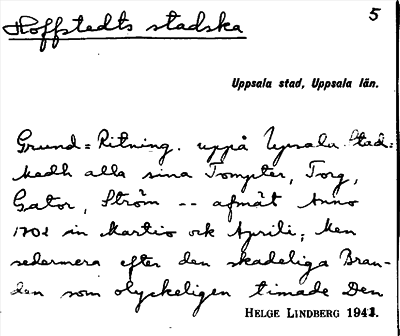 Hoffstedts stadska
5
Uppsala stad, Uppsala län.
Grund = Ritning. uppå Upsala Stad:
medh alla sina Tompter, Torg,
Gator, Ström -- afmät Anno
1702 in Martio och Aprili; Men
sedermera efter den skadeliga Bran-
den som olyckeligen timade Den
HELGE LINDBERG 1941.